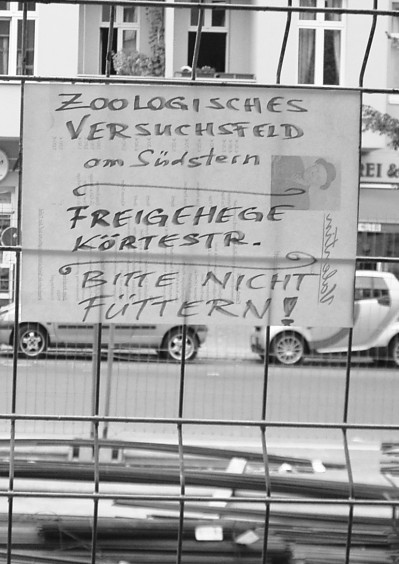 ZOOLOGISCHES
VERSUCHSFELD
am Südstern
FREIGEHEGE
KÖRTESTR.
BITTE NICHT
FÜTTERN!
Valentin
EI &